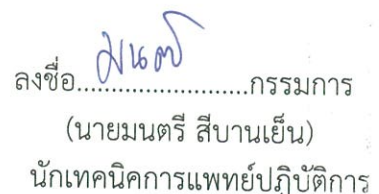 ลงชื่อ.........................กรรมการ
(นายมนตรี สีบานเย็น)
นักเทคนิคการแพทย์ปฏิบัติการ